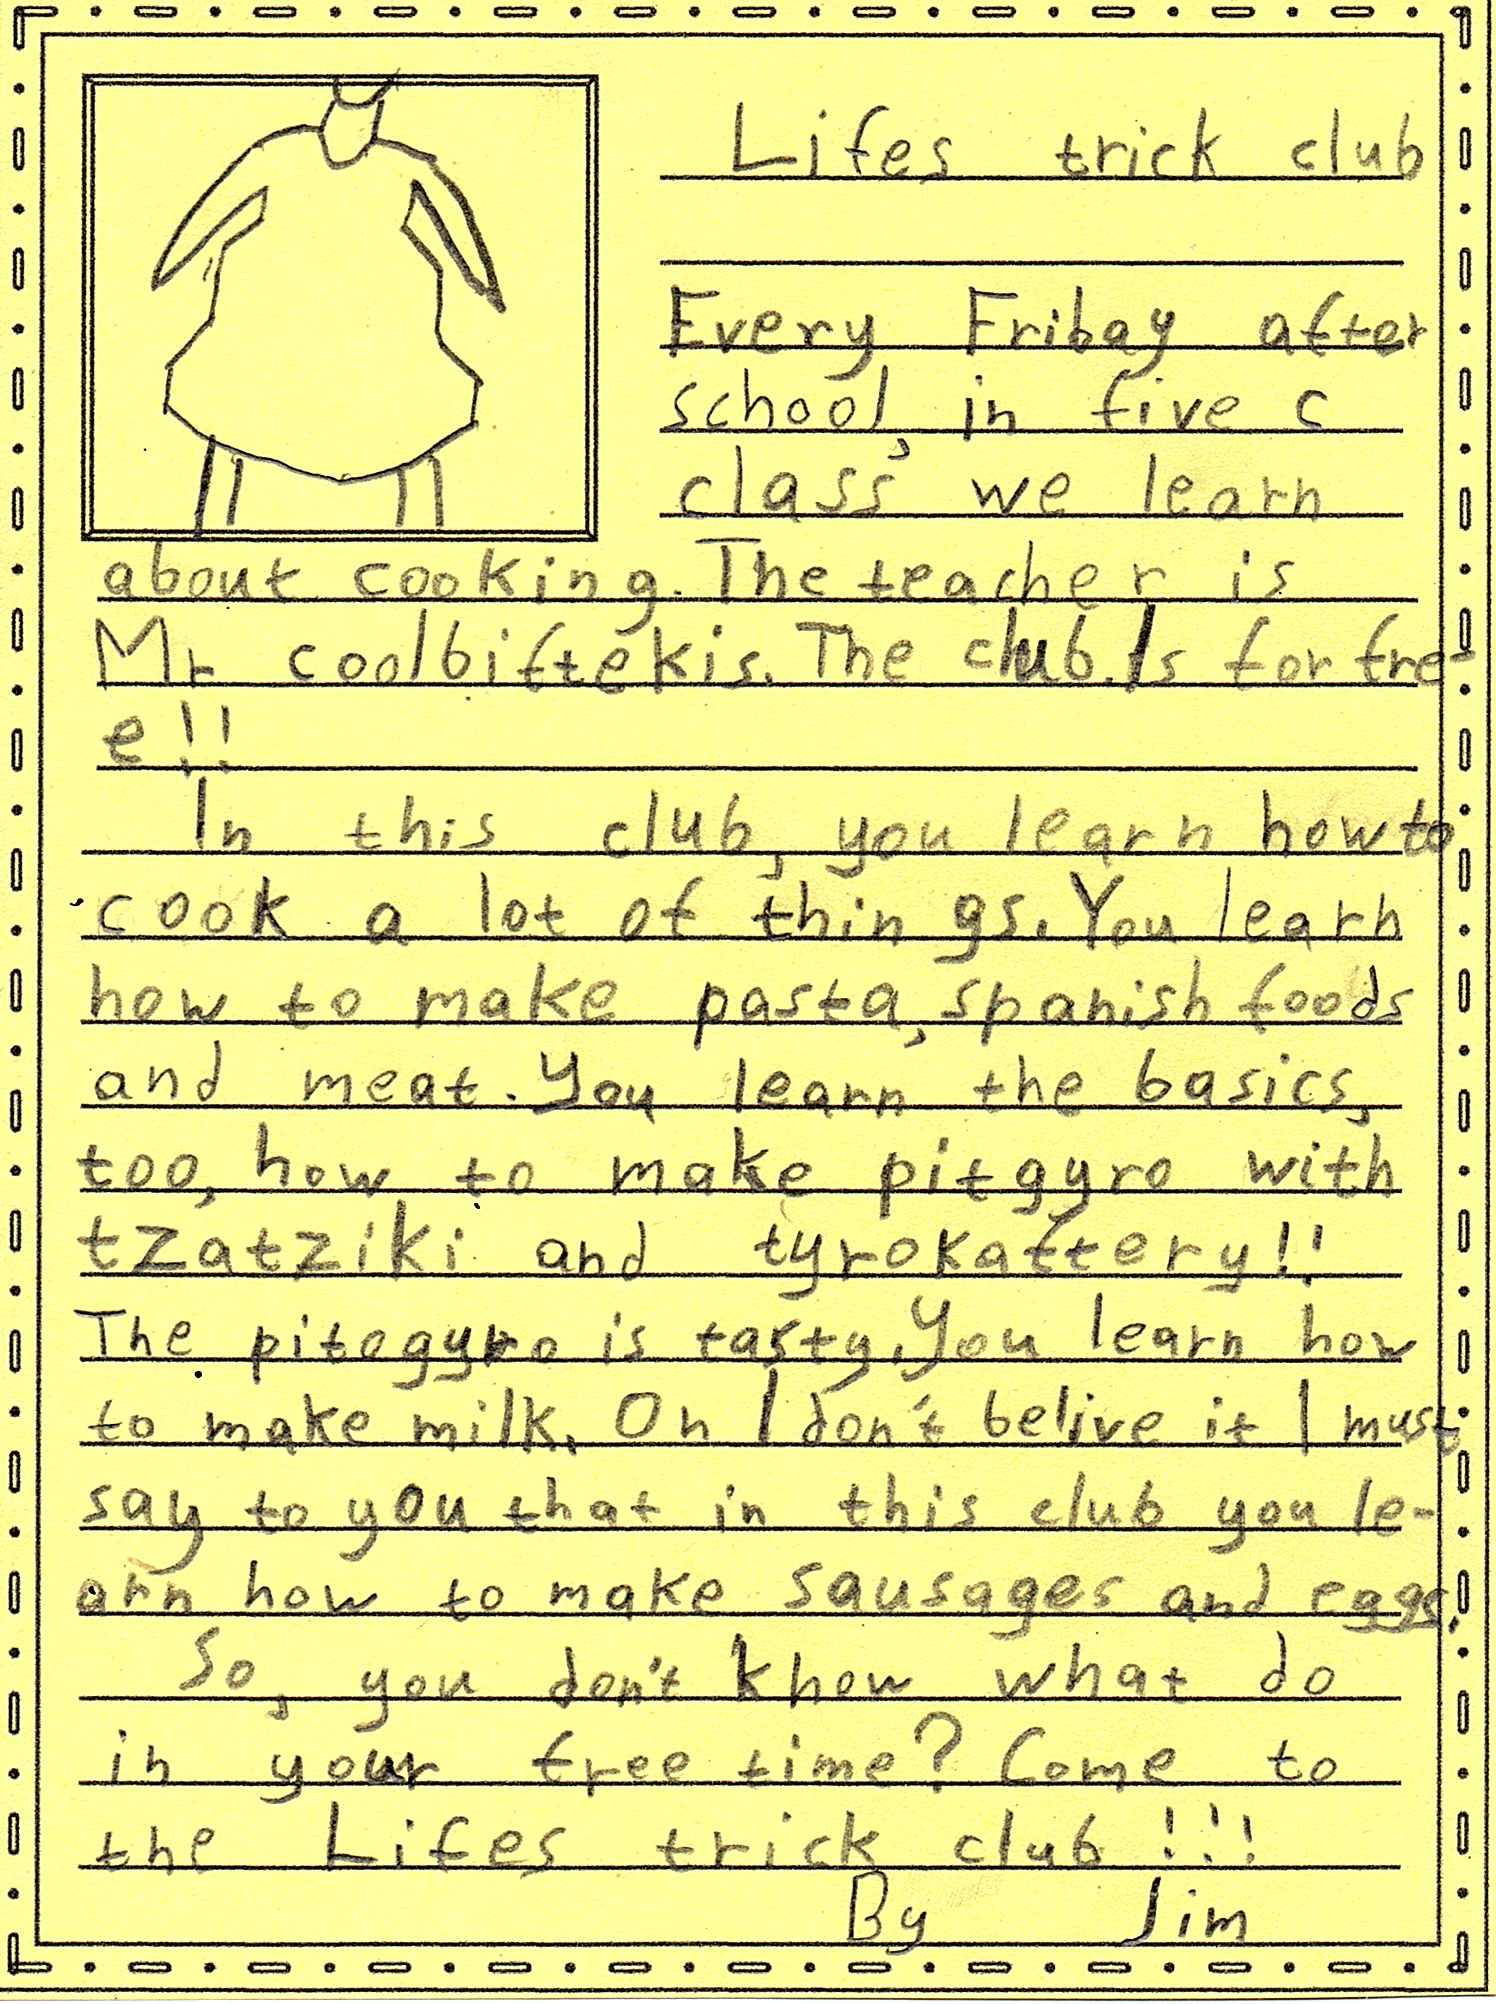 Lifes trick club
Every Fribay after
school, in five c
class we learn
about cooking. The teacher is
Mr coolbiftekis. The club. Is for fre-
e!!
In this club, you learn how to
cook a lot of things. You learn
how to make pasta, spanish foods
and meat. You learn the basics,
too, how to make pitgyro with
tzatziki and tyrokaftery!!
The pitogyro is tasty. You learn how
to make milk. On I don't belive it I must
say to you that in this club you le-
arn how to make sausages and eggs.
So, you don't know what do
in your free time? Come to
the Lifes trick club!!!
By Jim